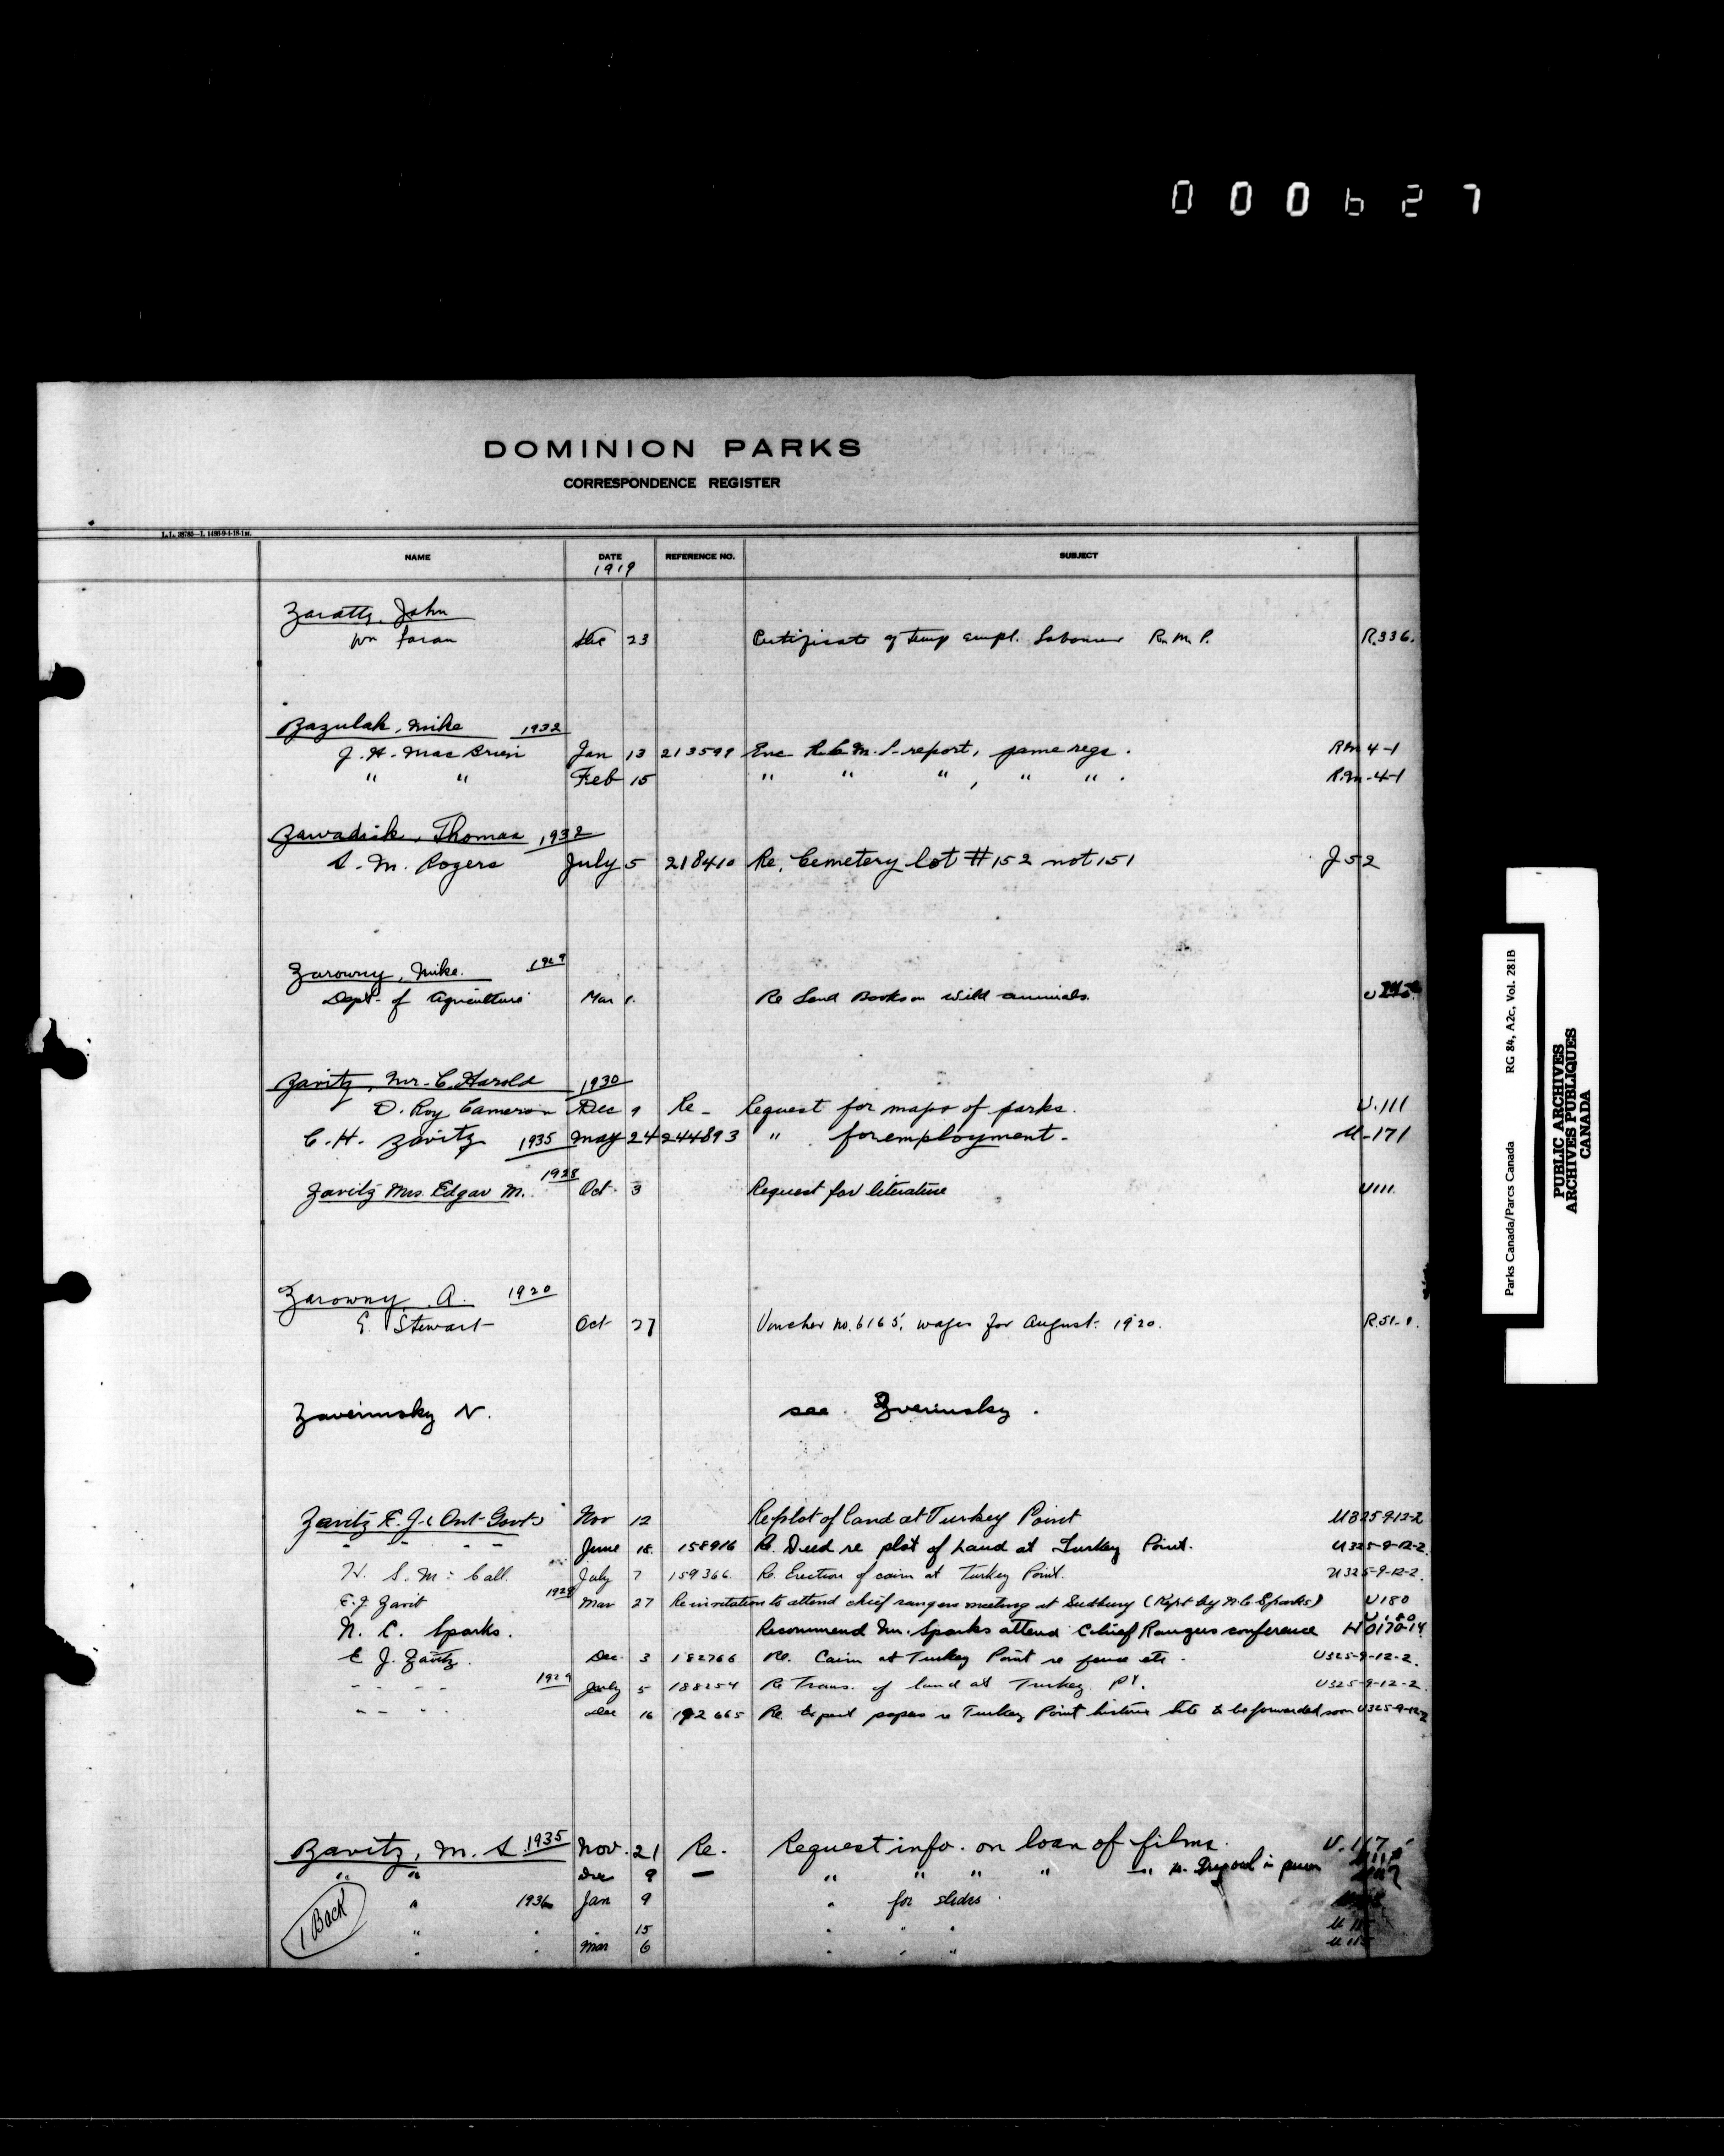 000627
DOMINION PARKS
CORRESPONDENCE REGISTER
NAME DATE REFERENCE NO. SUBJECT
1919
John
Dec 23 Certificate of temp empl. Labourer R.M.P. R.336.
Zazulak, Mike 1932
J. H. MacBrien Jan 13 213599 Enc R.C.M.P. report, game regs. RM 4-1
" " Feb 15 " " " , " " . R.M-4-1
Thomas 1932
S. M. Rogers July 5 218410 Re. Cemetery lot #152 not 151 J52
Zarowny, Mike. 1929
Dept. of Agriculture Mar 1. Re Send Books on Wild animals. U
Zavitz, Mr. C. Harold 1930
D. Roy Cameron Dec 9 Re- Request for maps of parks. U.111
C. H. Zavitz 1935 May 24 244893 " for employment. U-171
Zavitz Mrs Edgar M. 1928 Oct. 3 Request for literature U111
Zarowny A. 1920
E. Stewart Oct 27 Voucher no. 6165, wages for August. 1920. R.51-1.
Zaverinsky N. see Zverinsky.
Zavitz E. J. (Ont Govt) Nov 12 Re plot of land at Turkey Point U325-9-12-2
" - - - June 18. 158916 Re. Deed re plot of Land at Turkey Point. U325-9-12-2.
July 7 159366. Re. Erection of cairn at Turkey Point. U325-9-12-2.
E. J. Zavit 1928 Mar 27 Re invitation to attend chief rangers meeting at Sudbury (Rept by N.C. Sparks) U180
U180
N. C. Sparks. Recommend Mr. Sparks attend Chief Rangers conference
E J. Zavitz. Dec. 3 182766 Re. Cairn at Turkey Point re fence etc. U325-9-12-2.
- - - - 1929 July 5 188254 Re Trans. of land at Turkey Pt. U325-9-12-2
" - - - Dec 16 192665 Re. Expect papers re Turkey Point historic site to be forwarded soon U325-9-12-2
Zavitz, M. S. 1935 Nov. 21 Re. Request info. on loan of films. U.117
" " Dec 9 — " " " " "
1 Back
" 1936 Jan 9 " for slides.
" " " 15 " " " U 115
" " Mar 6 " " " U 115
RG 84, A2c, Vol. 281B
Parks Canada/Parcs Canada
PUBLIC ARCHIVES
ARCHIVES PUBLIQUES
CANADA